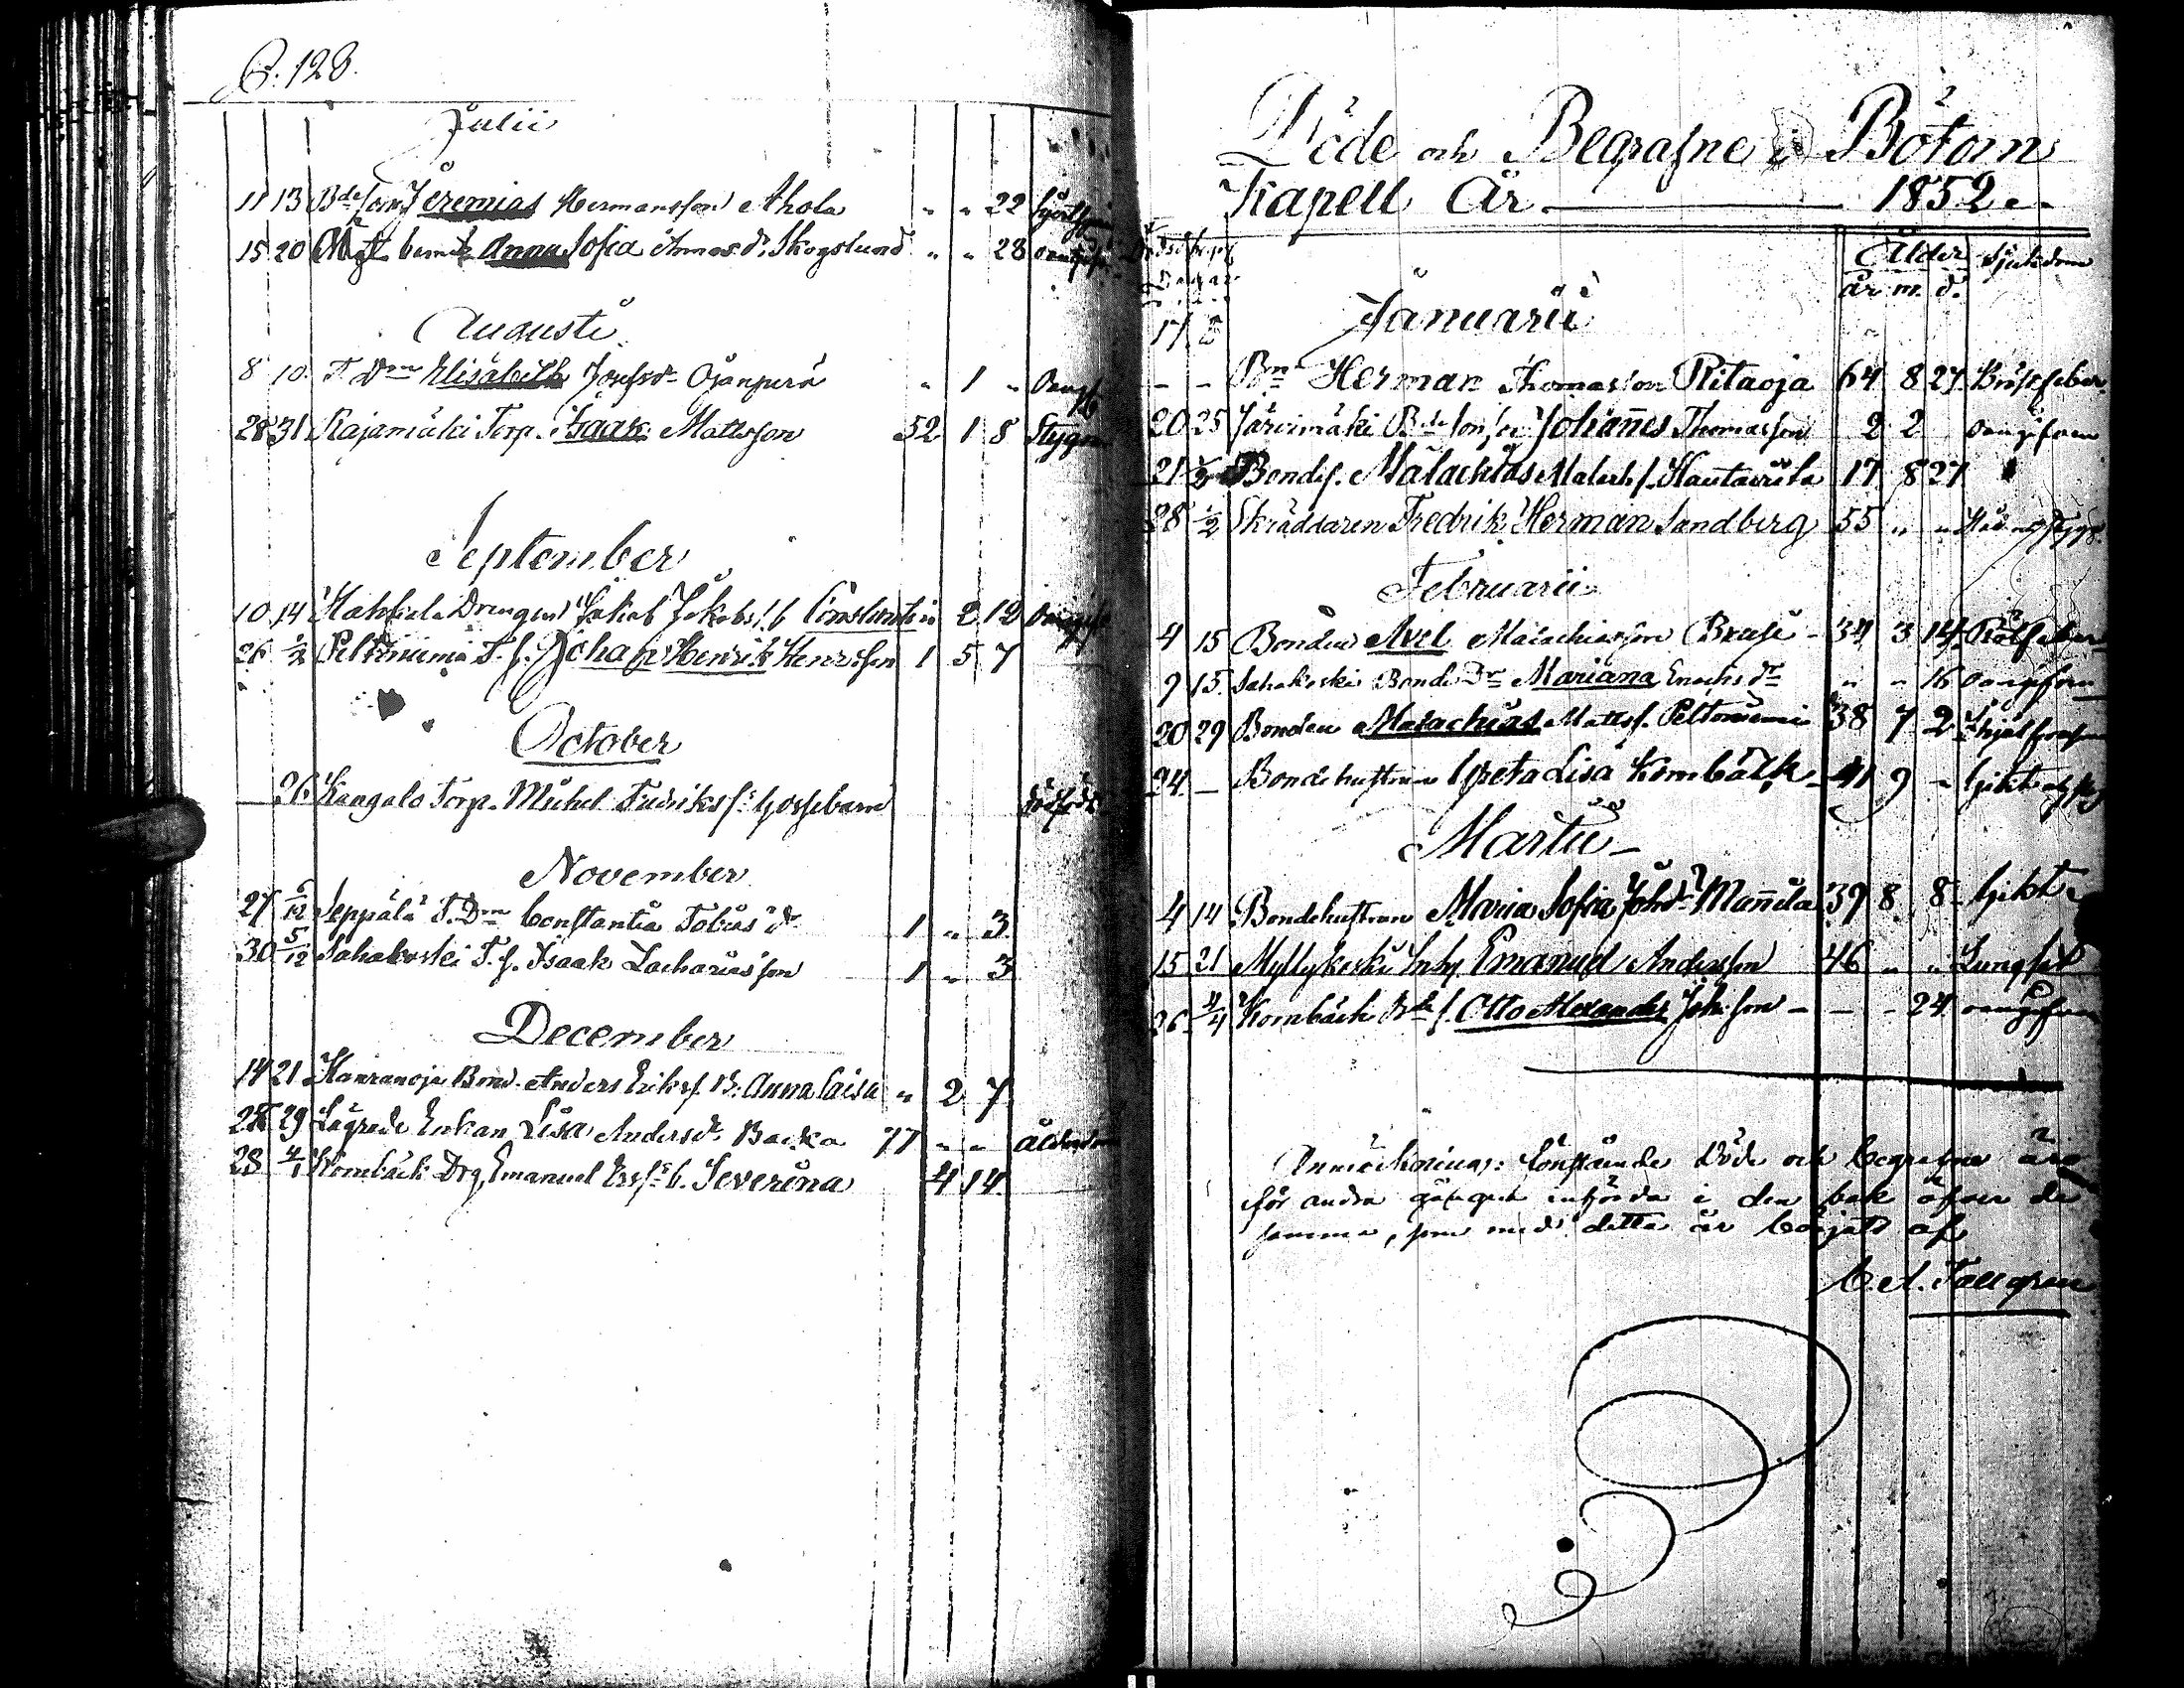 S. 128.
Julii
11 13 Bde son Jeremias Hermansson Ahola " " 22
15 20 barn Anna Sofia Annas dr Skogslund " " 28
Augusti
8 10. T. Drn Elisabeth Josefsdr Ojanperä " 1 "
28 31 Rajamäki Torp. Isaak Mattsson 52 1 8 Stygn
September
10 14 Drengen Jakob Jakobs s. b. Constantin 2 12
26 1/2 Peltoniemi T. s. Johan Henrik Henrsson 1 5 7
October
26 Kangalo Torp. Michel Fredriks s. Gossebarn dödfödt
November
27 6/12 Seppälä T. Drn Constantia Tobiasdr 1 " 3
30 5/12 Sahakoski T. s. Isaak Zachariasson 1 " 3
December
14 21 Bond. Anders Eriks s. B. Anna Caisa " 2 7
28 29 Enkan Lisa Andersdr Backa 77 " " Ålderdom
28 4/1 Kornbäck Drg Emanuel b. Severina 4 14
Döde och Begrafne i Bötom
Kapell År 1852
Ålder Sjukdom
år m. d.
Januarii
- - Bn Herman Thomasson Ritaoja 64 8 27 Bröstfeber
20 25 Järvimäki Bde son Johannes Thomasson 2 2 oangifven
21 1/2 Bondes. Malachias Malach s. Hautaviita 17 8 27 "
28 1/2 Skräddaren Fredrik Herman Sandberg 55 " "
Februarii
4 15 Bonden Axel Malachiasson Brase 34 3 14 Rötfeber
9 15. Sahakoski Bonde Dr Mariana Enochs dr " " 16 oangifven
20 29 Bonden Malachias Matts s. Peltoniemi 38 7 2
24 - Bondehustrun Greta Lisa Kornbäck 41 9 - Gikt
Martii
4 14 Bondehustrun Maria Sofia Joh.dr Mannila 39 8 8 Gikt
15 21 Myllykoski Inh. Emanuel Andersson 46 " " Lungsot
26 4/4 Kornbäck Bde s. Otto Alexander Joh. son - - 24 oangifven
Anmärkning: Döde och begrafne äro
för andra gången införda i den bok öfver de
samma, som med detta år börjats af
C. A. Tallgren